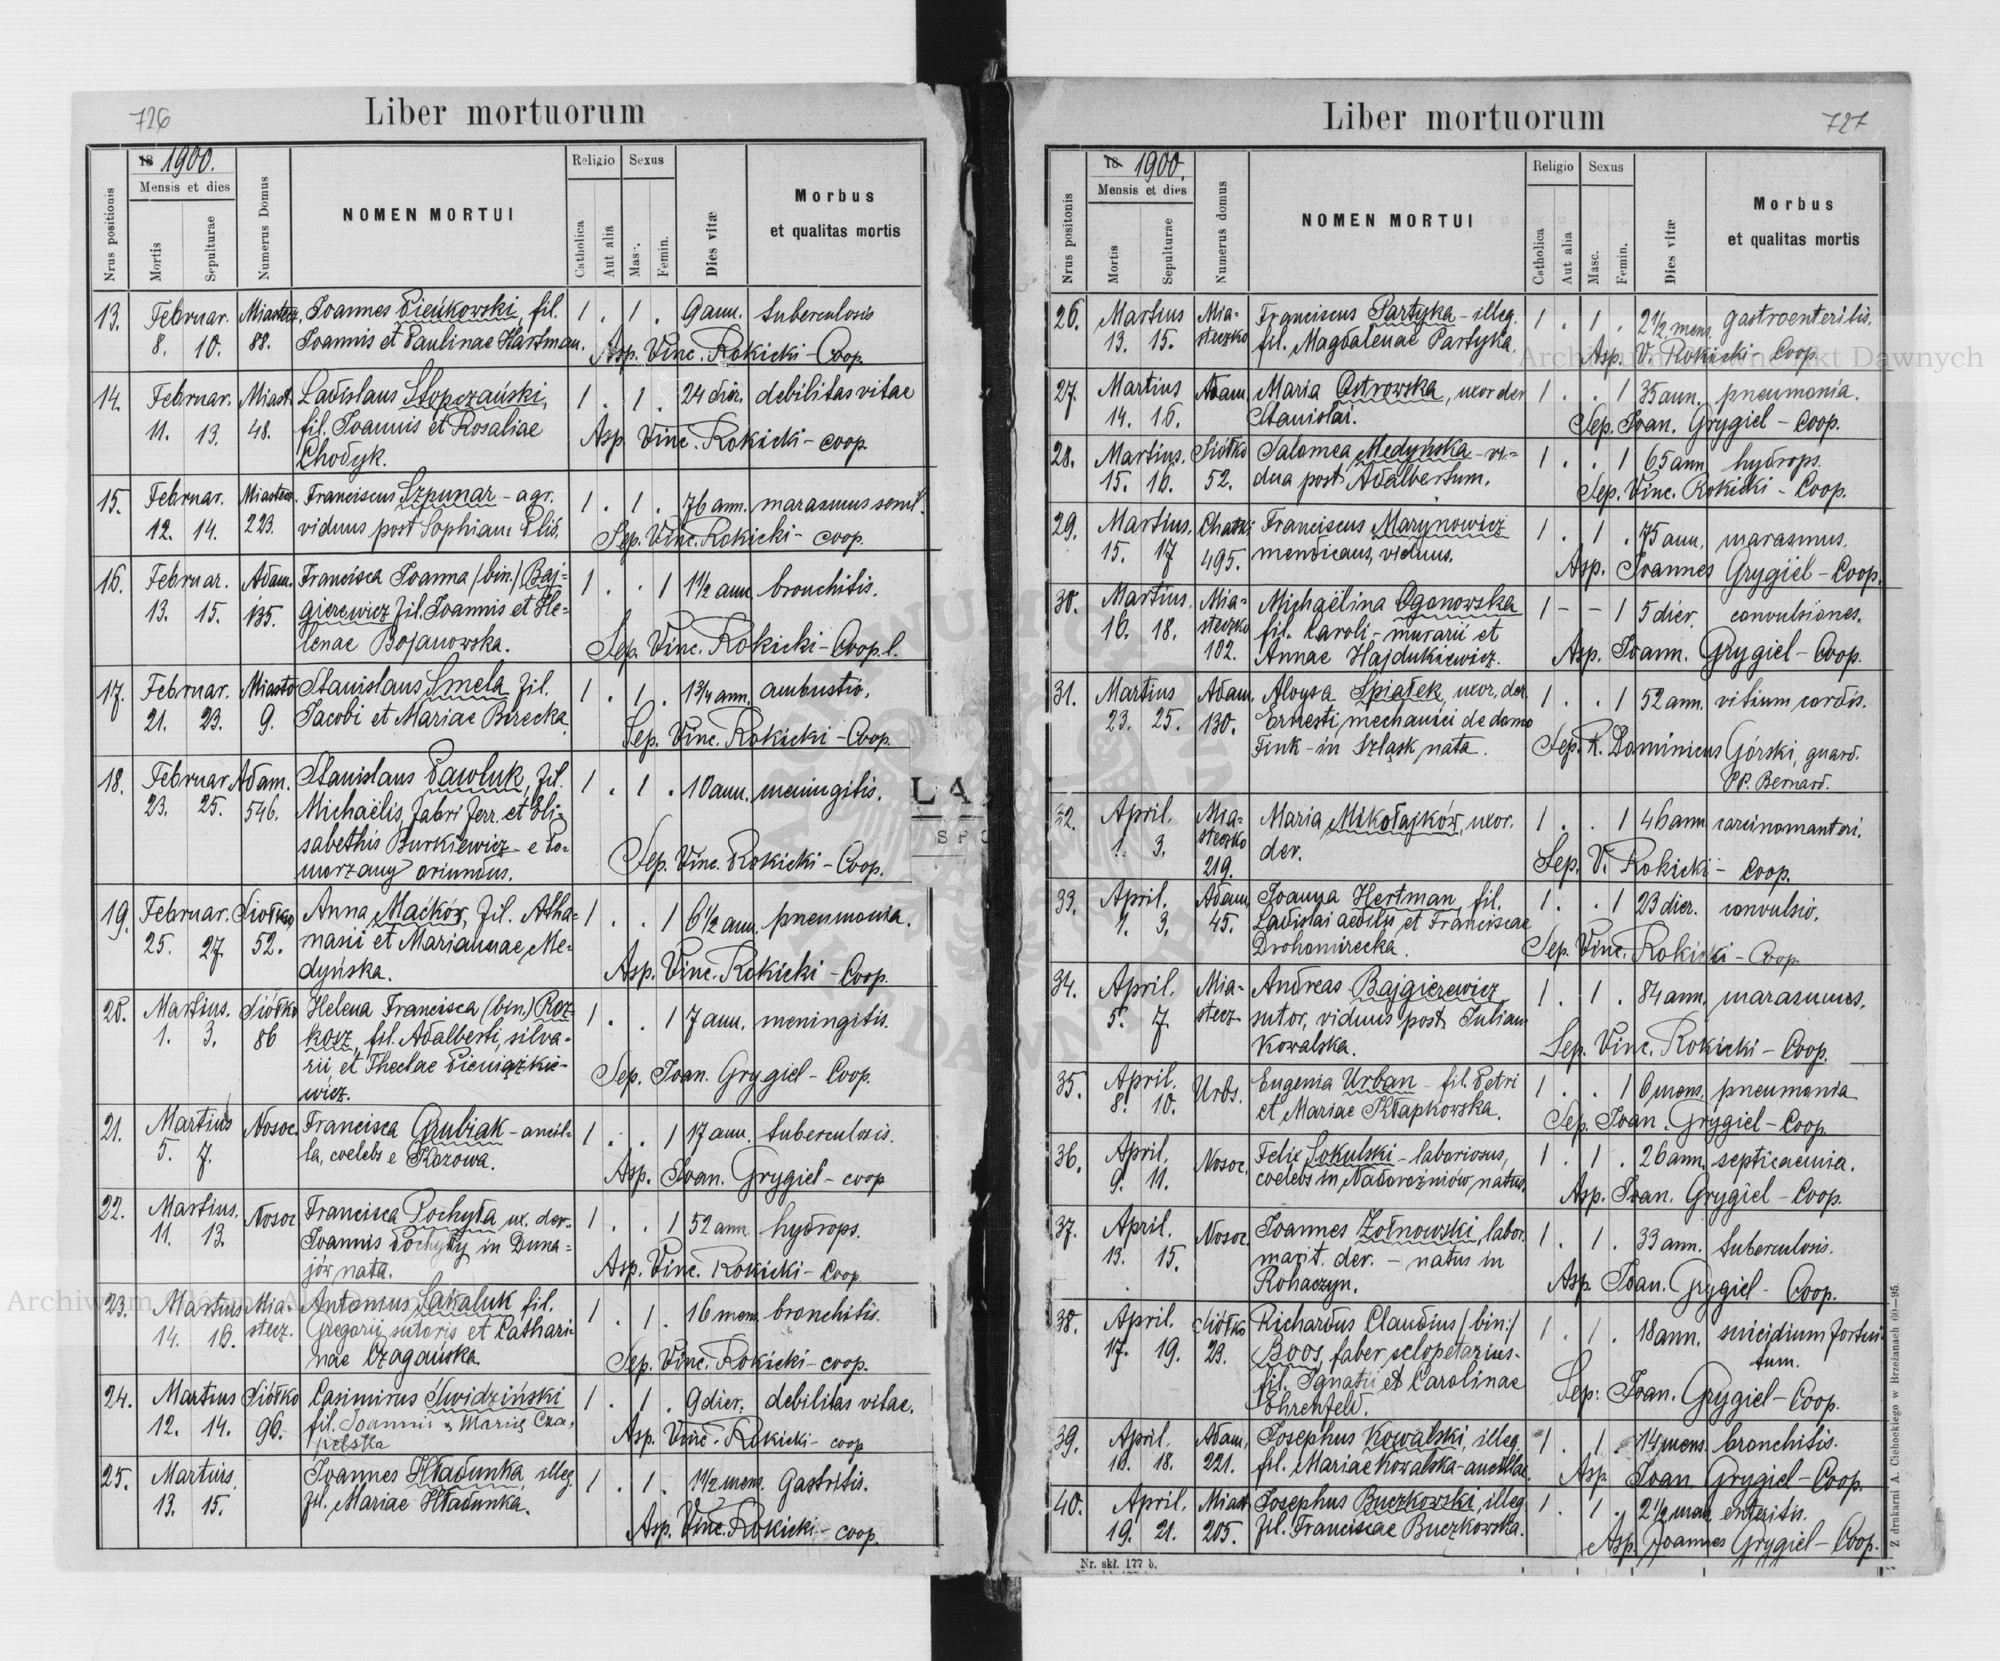 726
Liber mortuorum
Nrus positionis
18 1900.
Mensis et dies
Mortis
Sepulturae
Numerus Domus
NOMEN MORTUI
Religio
Catholica
Aut alia
Sexus
Masc.
Femin.
Dies vitæ
Morbus
et qualitas mortis
13. Februar. Miastecz. Joannes Pieńkowski, fil. 1 . 1 . 9 ann. tuberculosis
8. 10. 88. Joannis et Paulinae Hartman. Asp. Vinc. Rokicki - Coop.
14. Februar. Miast. Ladislaus Stopczański, 1 . 1 . 24 dier. debilitas vitae
11. 13. 48. fil. Joannis et Rosaliae Asp. Vinc. Rokicki - coop.
Chodyk.
15. Februar. Miastecz. Franciscus Szpunar - agr. 1 . 1 . 76 ann. marasmus senil.
12. 14. 223. viduus post Sophiam Pliś. Sep. Vinc. Rokicki - coop.
16. Februar. Adam. Francisca Joanna (bin.) Baj= 1 . . 1 1 1/2 ann. bronchitis.
13. 15. 135. gierewicz fil. Joannis et He=
lenae Bojanowska. Sep. Vinc. Rokicki - Coop. l.
17. Februar. Miasto Stanislaus Smela fil. 1 . 1 . 1 3/4 ann. ambustio.
21. 23. 9. Jacobi et Mariae Birecka. Sep. Vinc. Rokicki - Coop.
18. Februar. Adam. Stanislaus Pawluk, fil. 1 . 1 . 10 ann. meningitis.
23. 25. 546. Michaëlis, fabri ferr. et Eli=
sabethis Burkiewicz - e Po= Sep. Vinc. Rokicki - Coop.
morzany oriundus.
19. Februar. Siołko Anna Maćków, fil. Atha= 1 . . 1 6 1/2 ann. pneumonia.
25. 27. 52. nasii et Mariannae Me=
dyńska. Asp. Vinc. Rokicki - Coop.
20. Martius. Siołko Helena Francisca (bin.) Roz= 1 . . 1 7 ann. meningitis.
1. 3. 86 kosz, fil. Adalberti, silva=
rii et Theclae Pieniążkie= Sep. Joan. Grygiel - Coop.
wicz.
21. Martius Nosoc. Francisca Grubiak - ancil= 1 . . 1 17 ann. tuberculosis.
5. 7. la, coelebs e Kozowa. Asp. Joan. Grygiel - coop
22. Martius. Nosoc Francisca Pochyła ux. der. 1 . . 1 52 ann. hydrops.
11. 13. Joannis Pochyły in Duna=
jów nata. Asp. Vinc. Rokicki - Coop
23. Martius Mia= Antonius Sakaluk fil. 1 . 1 . 16 mens. bronchitis.
14. 16. stecz. Gregorii sutoris et Cathari
nae Czagańska. Sep. Vinc. Rokicki - coop.
24. Martius Siołko Casimirus Świdziński 1 . 1 . 9 dier. debilitas vitae.
12. 14. 96. fil. Joannis & Mariae Cza=
pelska Asp. Vinc. Rokicki - coop
25. Martius. Joannes Hładunka, illeg. 1 . 1 . 1 1/2 mens. Gastritis.
13. 15. fil. Mariae Hładunka. Asp. Vinc. Rokicki - coop.
727
Liber mortuorum
Nrus positonis
18 1900.
Mensis et dies
Mortis
Sepulturae
Numerus domus
NOMEN MORTUI
Religio
Catholica
Aut alia
Sexus
Masc.
Femin.
Dies vitæ
Morbus
et qualitas mortis
26. Martius Mia= Franciscus Partyka - illeg. 1 . 1 . 2 1/2 mens. gastroenteritis.
13. 15. steczko fil. Magdalenae Partyka. Asp. V. Rokicki - Coop.
27. Martius Adam. Maria Ostrowska, uxor der 1 . . 1 35 ann. pneumonia.
14. 16. Stanislai. Sep. Joan. Grygiel - Coop.
28. Martius. Siółko Salomea Medyńska - vi= 1 . . 1 65 ann. hydrops.
15. 16. 52. dua post Adalbertum. Sep. Vinc. Rokicki - Coop.
29. Martius. Chatki Franciscus Marynowicz 1 . 1 . 75 ann. marasmus.
15. 17 495. mendicans, viduus. Asp. Joannes Grygiel - Coop.
30. Martius. Mia= Michaëlina Ogonowska 1 - - 1 5 dier. convulsiones.
16. 18. steczko fil. Karoli - murarii et
102. Annae Hajdukiewicz. Asp. Joann. Grygiel - Coop.
31. Martius Adam. Aloysa Spiałek, uxor. der. 1 . . 1 52 ann. vitium cordis.
23. 25. 130. Ernesti mechanici de domo
Fink - in Szląsk nata. Sep. R. Dominicus Górski, guard.
PP. Bernard.
32. April. Mia= Maria Mikołajków, uxor. 1 . . 1 46 ann. carcinoma uteri.
1. 3. steczko der.
219. Sep. V. Rokicki - Coop.
33. April. Adam. Joanna Hertman, fil. 1 . . 1 23 dier. convulsio.
1. 3. 45. Ladislai aedilis et Franciscae
Drohomirecka. Sep. Vinc. Rokicki - Coop
34. April. Mia= Andreas Bajgierewicz 1 . 1 . 84 ann. marasmus.
5. 7. stecz. sutor, viduus post Juliam
Kowalska. Sep. Vinc. Rokicki - Coop.
35. April. Urbs. Eugenia Urban - fil. Petri 1 . . 1 6 mens. pneumonia
8. 10. et Mariae Kłapkowska. Sep. Joan. Grygiel - Coop
36. April. Nosoc. Felix Sokulski - laboriosus, 1 . 1 . 26 ann. septicaemia.
9. 11. coelebs in Nadorożniów natus. Asp. Joan. Grygiel - Coop.
37. April. Nosoc. Joannes Żołnowski, labor. 1 . 1 . 33 ann. tuberculosis.
13. 15. marit. der. - natus in
Rohaczyn. Asp. Joan. Grygiel - Coop.
38. April. Siółko Richardus Claudius (bin.) 1 . 1 . 18 ann. suicidium fortui-
17. 19. 23. Boos, faber sclopetarius - tum.
fil. Ignatii et Carolinae Sep. Joan. Grygiel - Coop.
39. April. Adam. Josephus Kowalski, illeg. 1 . 1 . 14 mens. bronchitis.
18. 221. fil. Mariae Kowalska - ancillae. Asp. Joan. Grygiel - Coop.
40. April. Miast. Josephus Buczkowski, illeg. 1 . 1 . 2 1/2 mens. enteritis.
19. 21. 205. fil. Franciscae Buczkowska. Asp. Joannes Grygiel - Coop.
Nr. skł. 177 b.
Z drukarni A. Cichockiego w Brzeżanach 60—95.